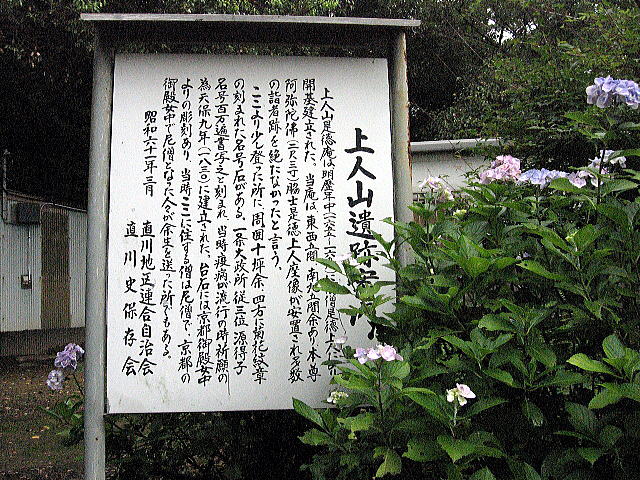 上人山遺跡
上人山是徳庵は明歴年中(一六五五−一六 僧是徳上人に
開基建立された。当庵は東西五間、南北五間余あり本尊
阿弥陀佛(三尺三寸)脇士是徳上人座像が安置され参敬
の詣者跡を絶たなかったと言う。
ここより少し登った所に周囲十坪余、四方に菊花紋章
の刻まれた名号石がある。一条大政所従三位源得子
名号百万遍書写之と刻まれ、当時疫病が流行の時祈願の
為天保九年(一八三〇)に建立された、台石には京都御殿女中
よりの彫刻あり、当時ここに住する僧は尼僧で、京都の
御殿女中で尼僧になった人が余生を送った所でもある。
昭和六十一年三月
直川地区連合自治会
直川史保存会